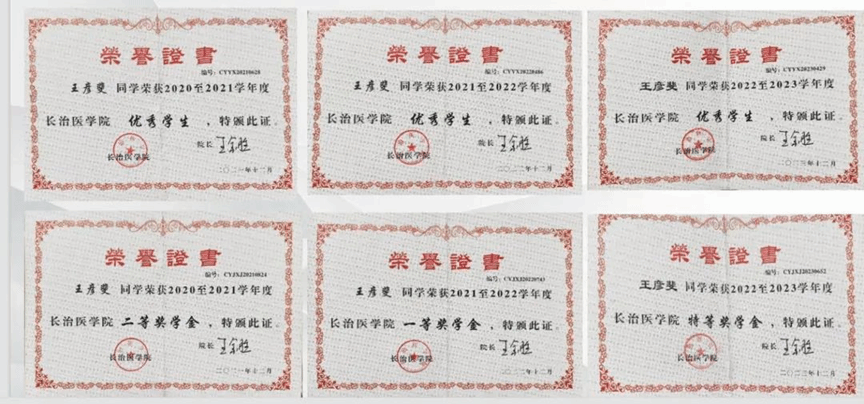 榮譽證書
编号：CYYX20210628
王彦斐 同学荣获2020至2021学年度
长治医学院 优秀学生 ，特颁此证。
院长
长治医学院
二〇二一年十二月
榮譽證書
编号：CYYX20220486
王彦斐 同学荣获2021至2022学年度
长治医学院 优秀学生 ，特颁此证。
院长
长治医学院
二〇二二年十二月
榮譽證書
编号：CYYX20230429
王彦斐 同学荣获2022至2023学年度
长治医学院 优秀学生 ，特颁此证。
院长
长治医学院
二〇二三年十二月
榮譽證書
编号：CYJXJ20210824
王彦斐 同学荣获2020至2021学年度
长治医学院 二等奖学金 ，特颁此证。
院长
长治医学院
二〇二一年十二月
榮譽證書
编号：CYJXJ20220743
王彦斐 同学荣获2021至2022学年度
长治医学院 一等奖学金 ，特颁此证。
院长
长治医学院
二〇二二年十二月
榮譽證書
编号：CYJXJ20230652
王彦斐 同学荣获2022至2023学年度
长治医学院 特等奖学金 ，特颁此证。
院长
长治医学院
二〇二三年十二月